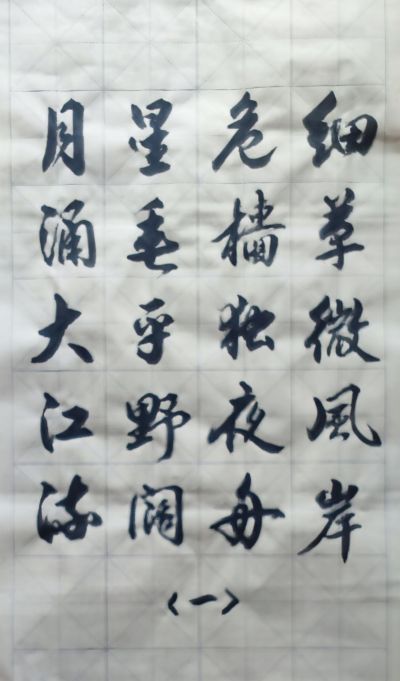 细草微風岸
危檣独夜舟
星垂平野阔
月涌大江流
<一>